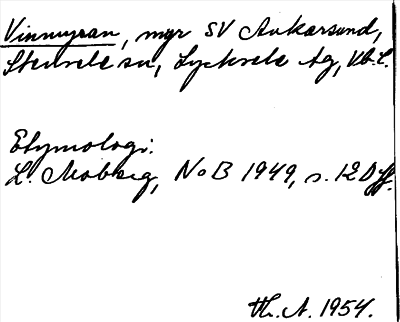 Vinnmyran, myr SV Ankarsund,
Stensele sn, Lycksele lg, Vb. L.
Etymologi:
L. Moberg, NoB 1949, s. 120 ff.
Th. A. 1954.